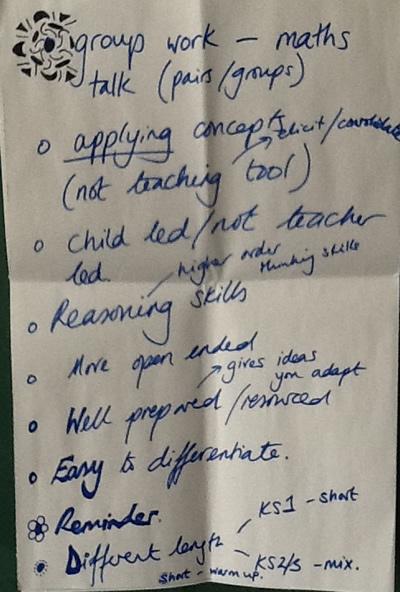 group work - maths
talk (pairs/groups)
applying concepts
elicit/consolidate
(not teaching tool)
child led/not teacher
led
higher order
thinking skills
Reasoning skills
More open ended
gives ideas
you adapt
Well prepared/resourced
Easy to differentiate.
Reminder.
KS1 - short
Different length
KS2/3 - mix.
short - warm up.